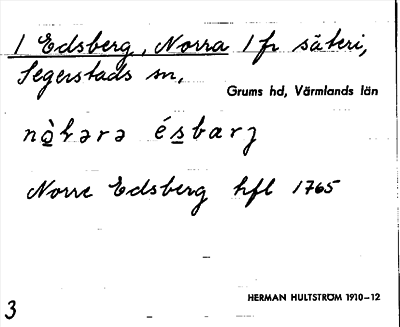 1 Edsberg, Norra 1 fr säteri,
Segerstads sn,
Grums hd, Värmlands län
Norre Edsberg hfl 1765
HERMAN HULTSTRÖM 1910-12
3